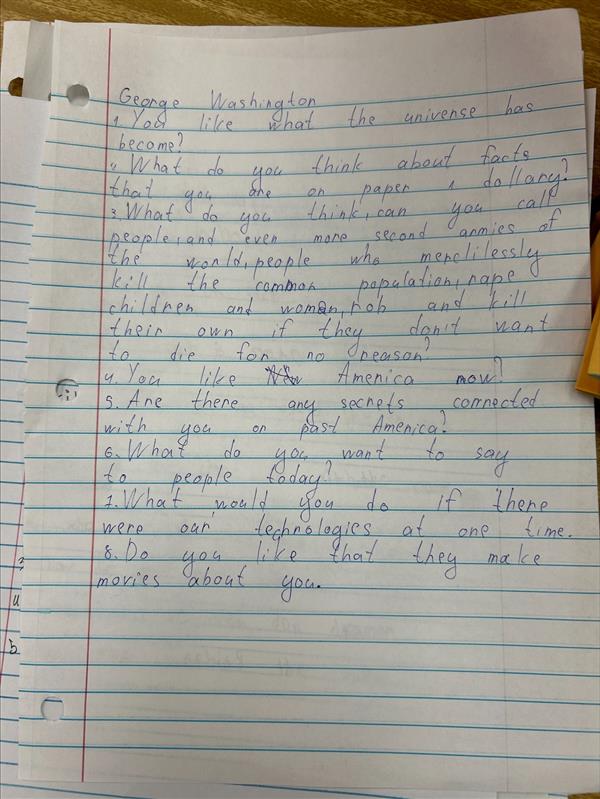 George Washington
1. You like what the universe has
become?
2. What do you think about facts
that you are on paper 1 dollary?
3. What do you think, can you call
people, and even more second armies of
the world, people who merclilessly
kill the common population, rape
children and woman, rob and kill
their own if they don't want
to die for no reason?
4. You like America now?
5. Are there any secrets connected
with you or past America?
6. What do you want to say
to people today?
7. What would you do if there
were our technologies at one time.
8. Do you like that they make
movies about you.